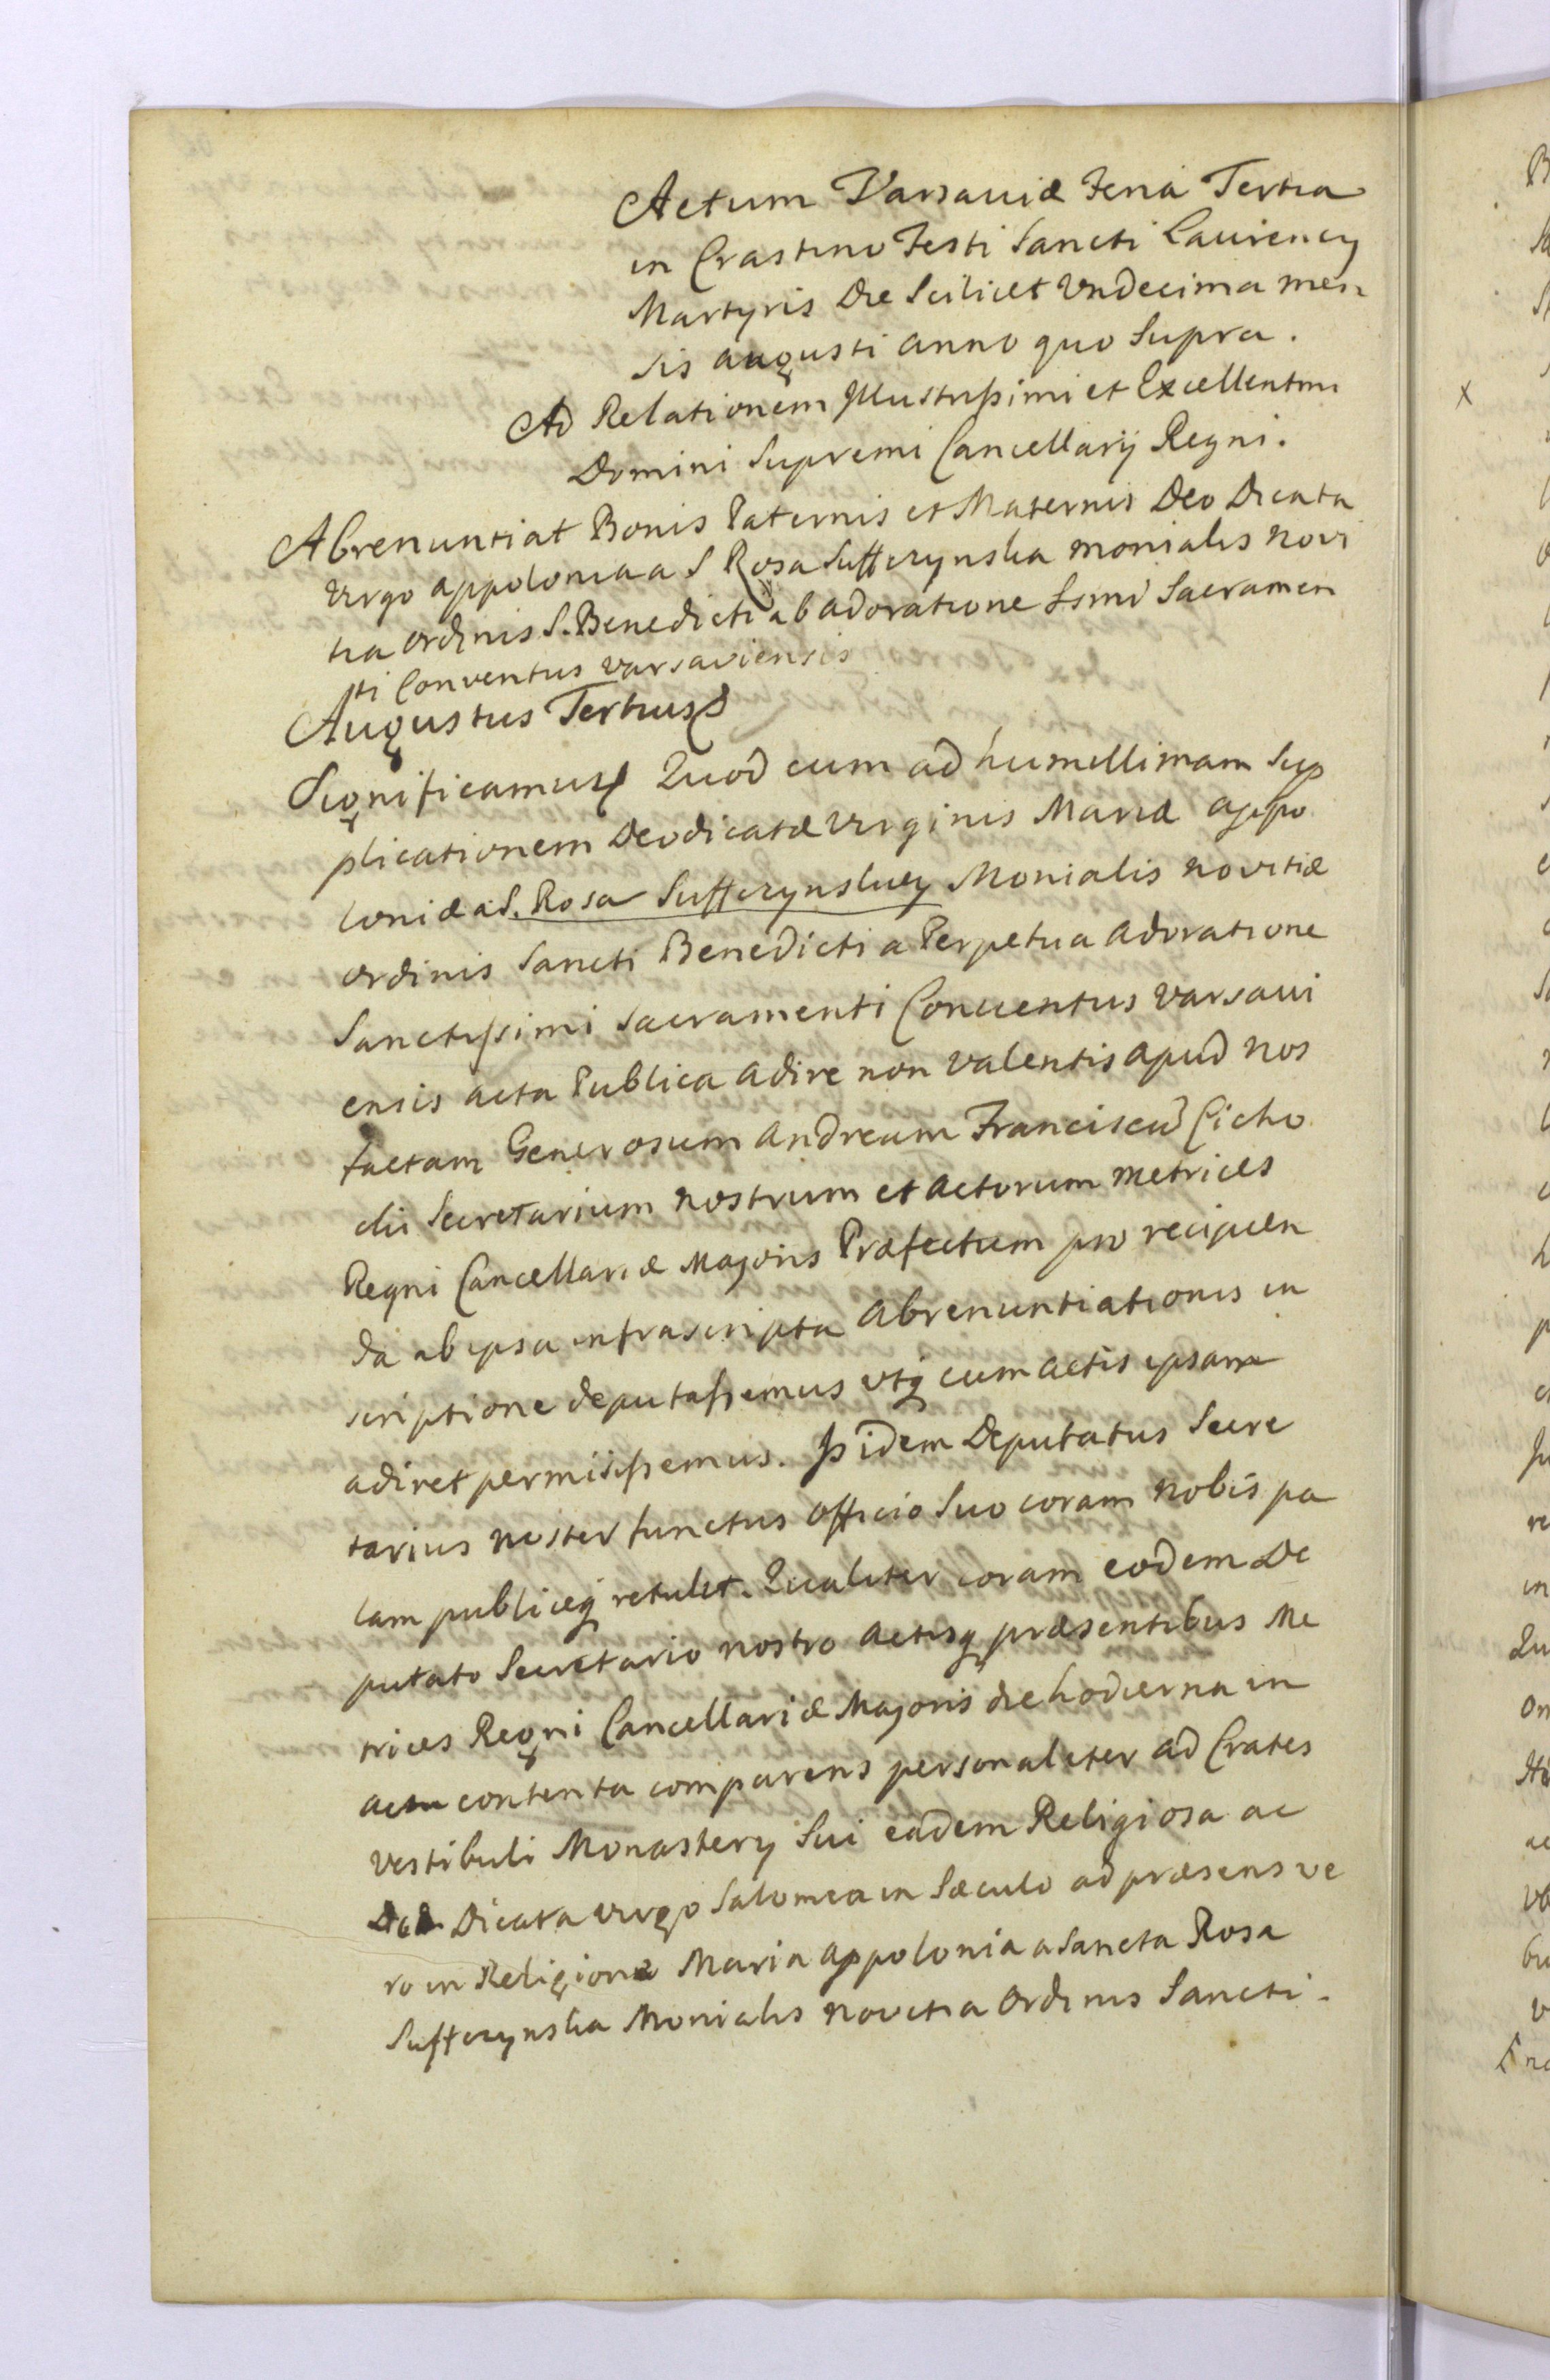 Actum Varsaviæ Feria Tertia
in Crastino Festi Sancti Laurencij
Martyris Die Scilicet Undecima men
sis augusti anno quo Supra.
Ad Relationem Illustrissimi et Excellentmi
Domini Supremi Cancellarij Regni.
Abrenuntiat Bonis Paternis et Maternis Deo Dicata
Virgo appolonia a S Rosa Suffczynska monialis novi
tia ordinis S. Benedicti ab adoratione Ssmi Sacramen
ti Conventus varsaviensis
Augustus Tertius
Significamus Quod cum ad humillimam Sup
plicationem Deodicatæ Virginis Mariæ appo
loniæ a S. Rosa Suffczynskiey Monialis novitiæ
ordinis Sancti Benedicti a Perpetua adoratione
Sanctissimi Sacramenti Conventus varsavi
ensis acta Publica adire non valentis apud nos
factam Generosum Andream Franciscū Cicho
cki Secretarium nostrum et actorum metrices
Regni Cancellariæ Majoris Præfectum pro recipien
da ab ipsa infrascripta abrenuntiationis in
scriptione deputassemus utq cum actis ipsam
adiret permisissemus. Is idem Deputatus Secre
tarius noster functus officio Suo coram nobis pa
lam publiceq retulit. Qualiter coram eodem De
putato Secretario nostro actisq præsentibus Me
trices Regni Cancellariæ Majoris die hodierna in
actu contenta comparens personaliter ad Crates
vestibuli Monastery Sui eadem Religiosa ac
Deo Dicata virgo Salomea in Sæculo ad præsens ve
ro in Religione Maria appolonia a Sancta Rosa
Suffczynska Monialis novitia ordinis Sancti